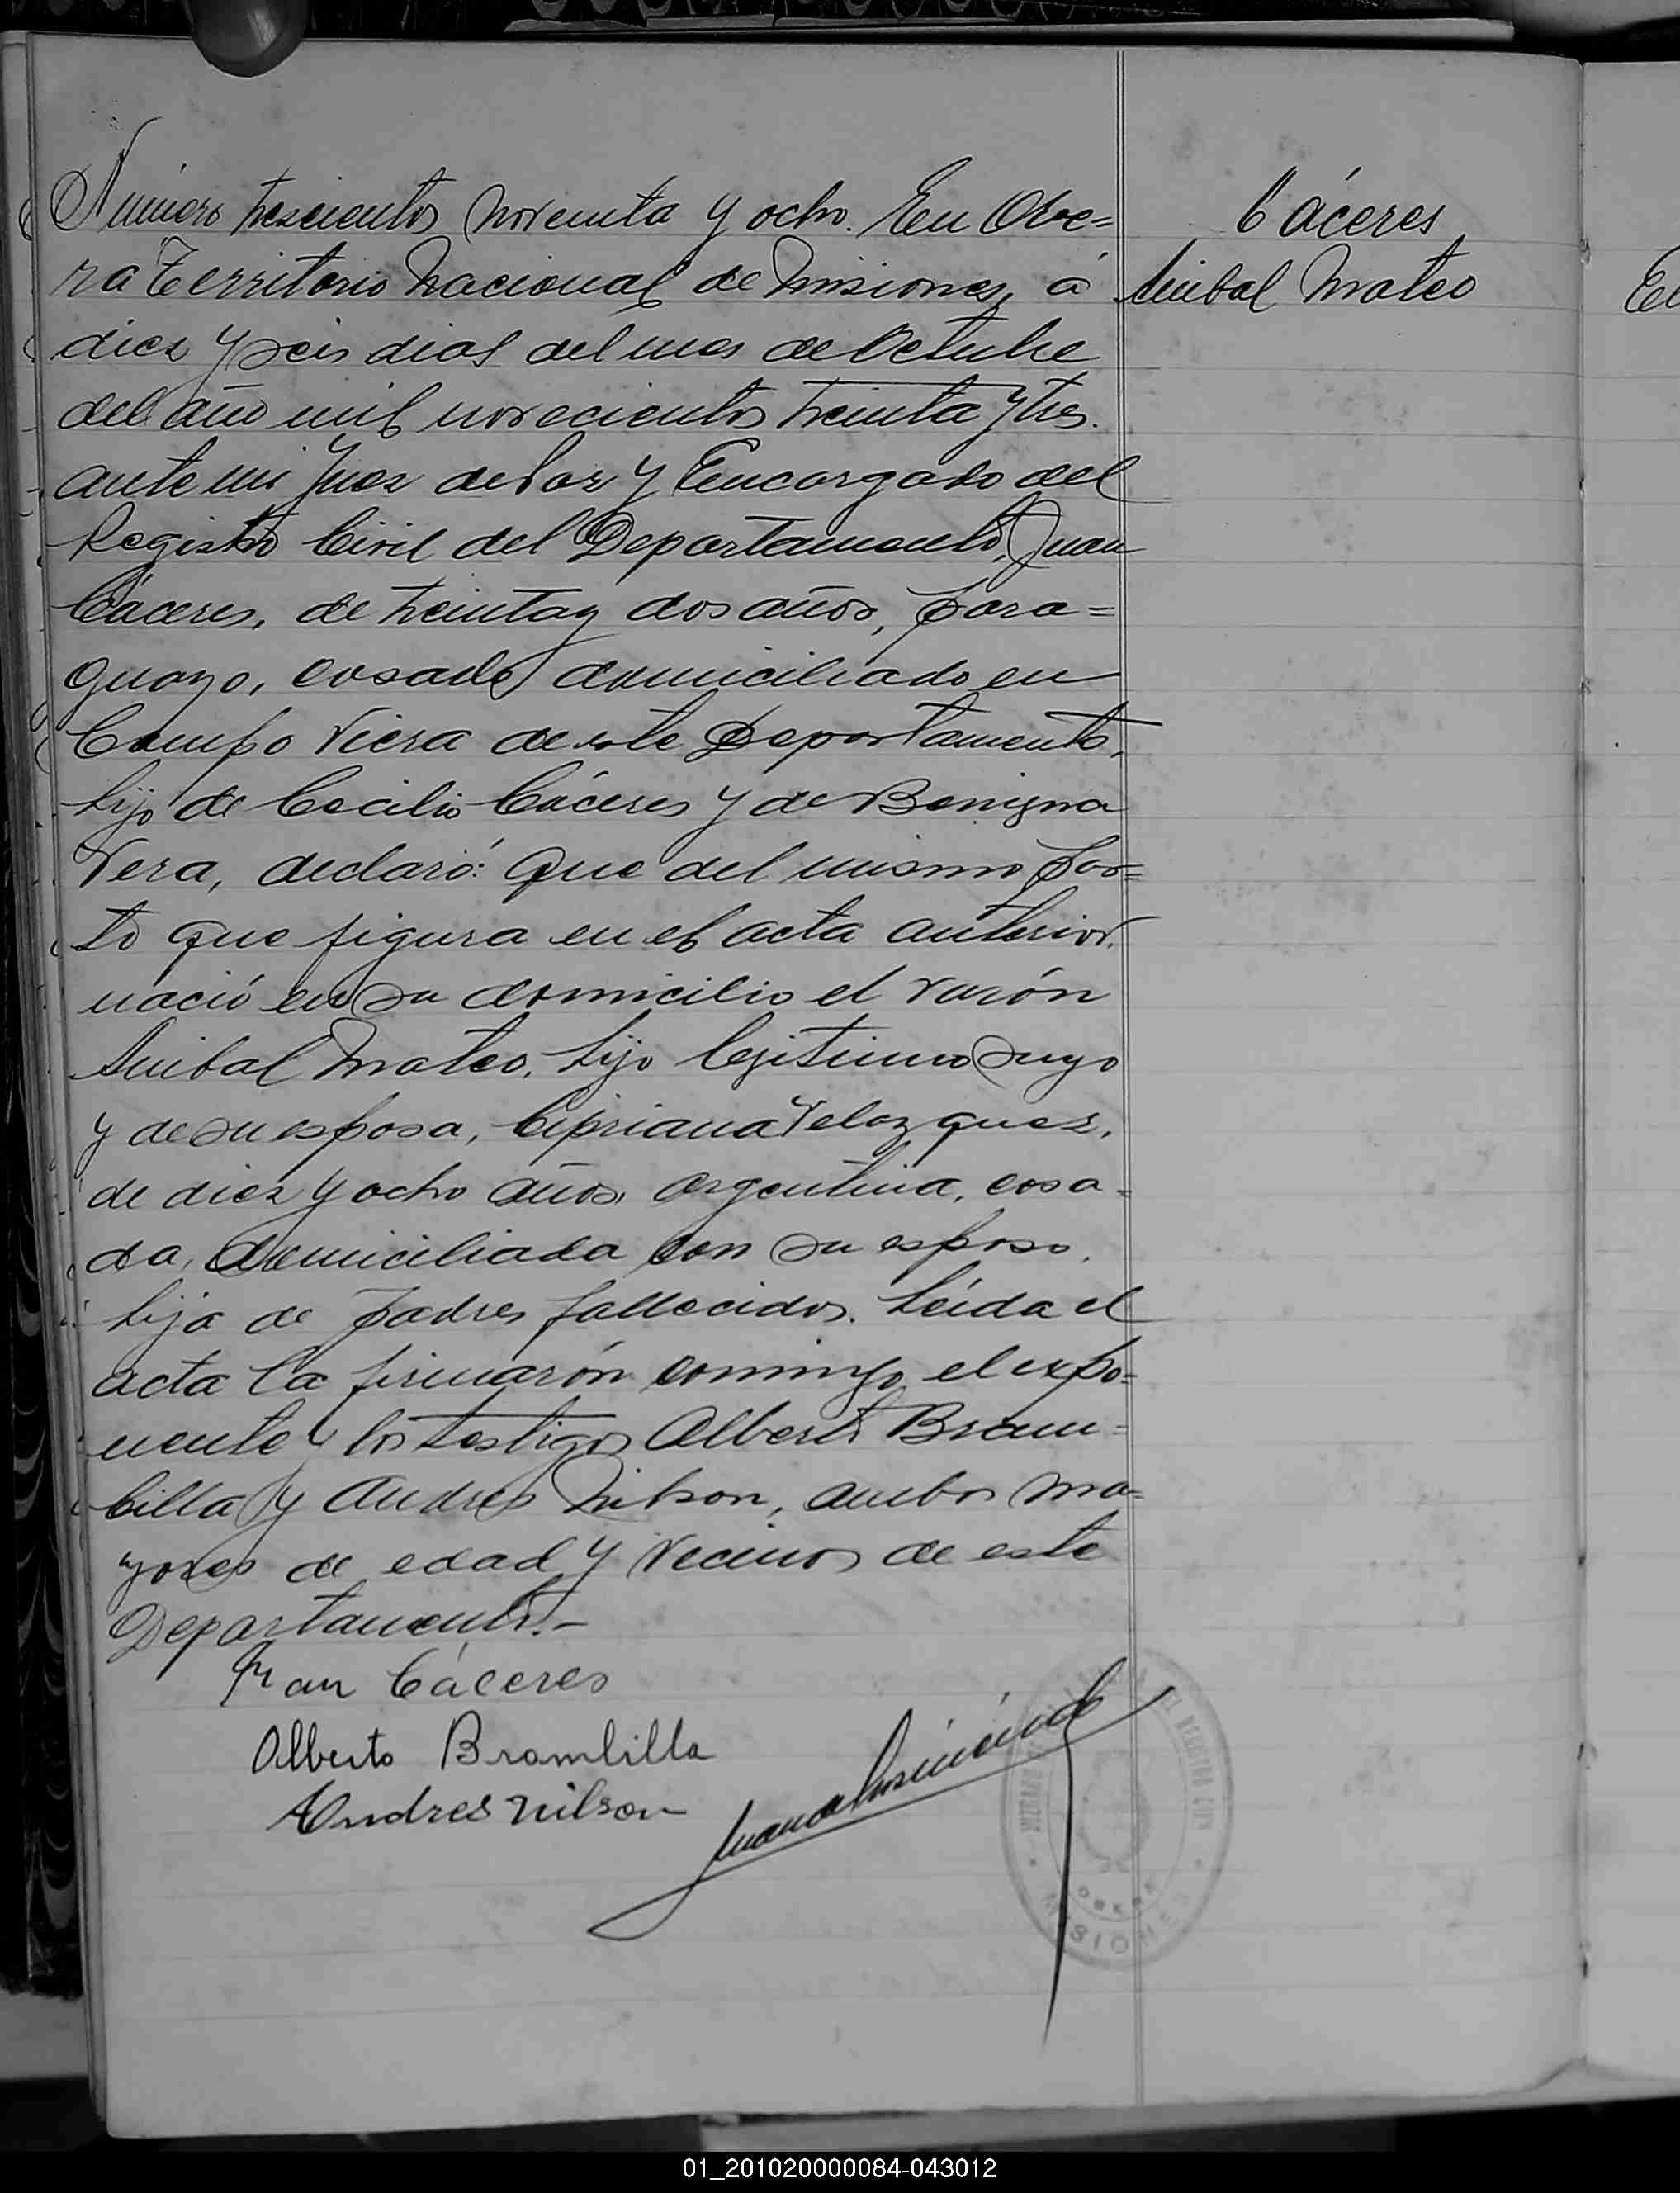 Número trescientos noventa y ocho. En Obe=
ra Territorio Nacional de Misiones, á
diez y seis dias del mes de Octubre
del año mil novecientos treinta y tres.
ante mi Juez de Paz y Encargado del
Registro Civil del Departamento, Juan
Cáceres, de treinta y dos años, para=
guayo, casado domiciliado en
Campo Viera de este Departamento,
hijo de Cecilio Cáceres y de Benigna
Vera, declaró: Que del mismo par=
to que figura en el acta anterior.
nació en su domicilio el varón
Anibal Mateo, hijo legitimo suyo
y de su esposa, Cipriana Velazquez,
de diez y ocho años, argentina, casa=
da, domiciliada con su esposo,
hija de padres fallecidos. Leída el
acta la firmarón conmigo el expo=
nente y los testigos Alberto Bram=
billa y Andres Nilson, ambos ma=
yores de edad y vecinos de este
Departamento.-
Juan Cáceres
Alberto Brambilla
Andres Nilson
Cáceres
Anibal Mateo
EL REGISTRO CIVIL
MISIONES
01_201020000084-043012